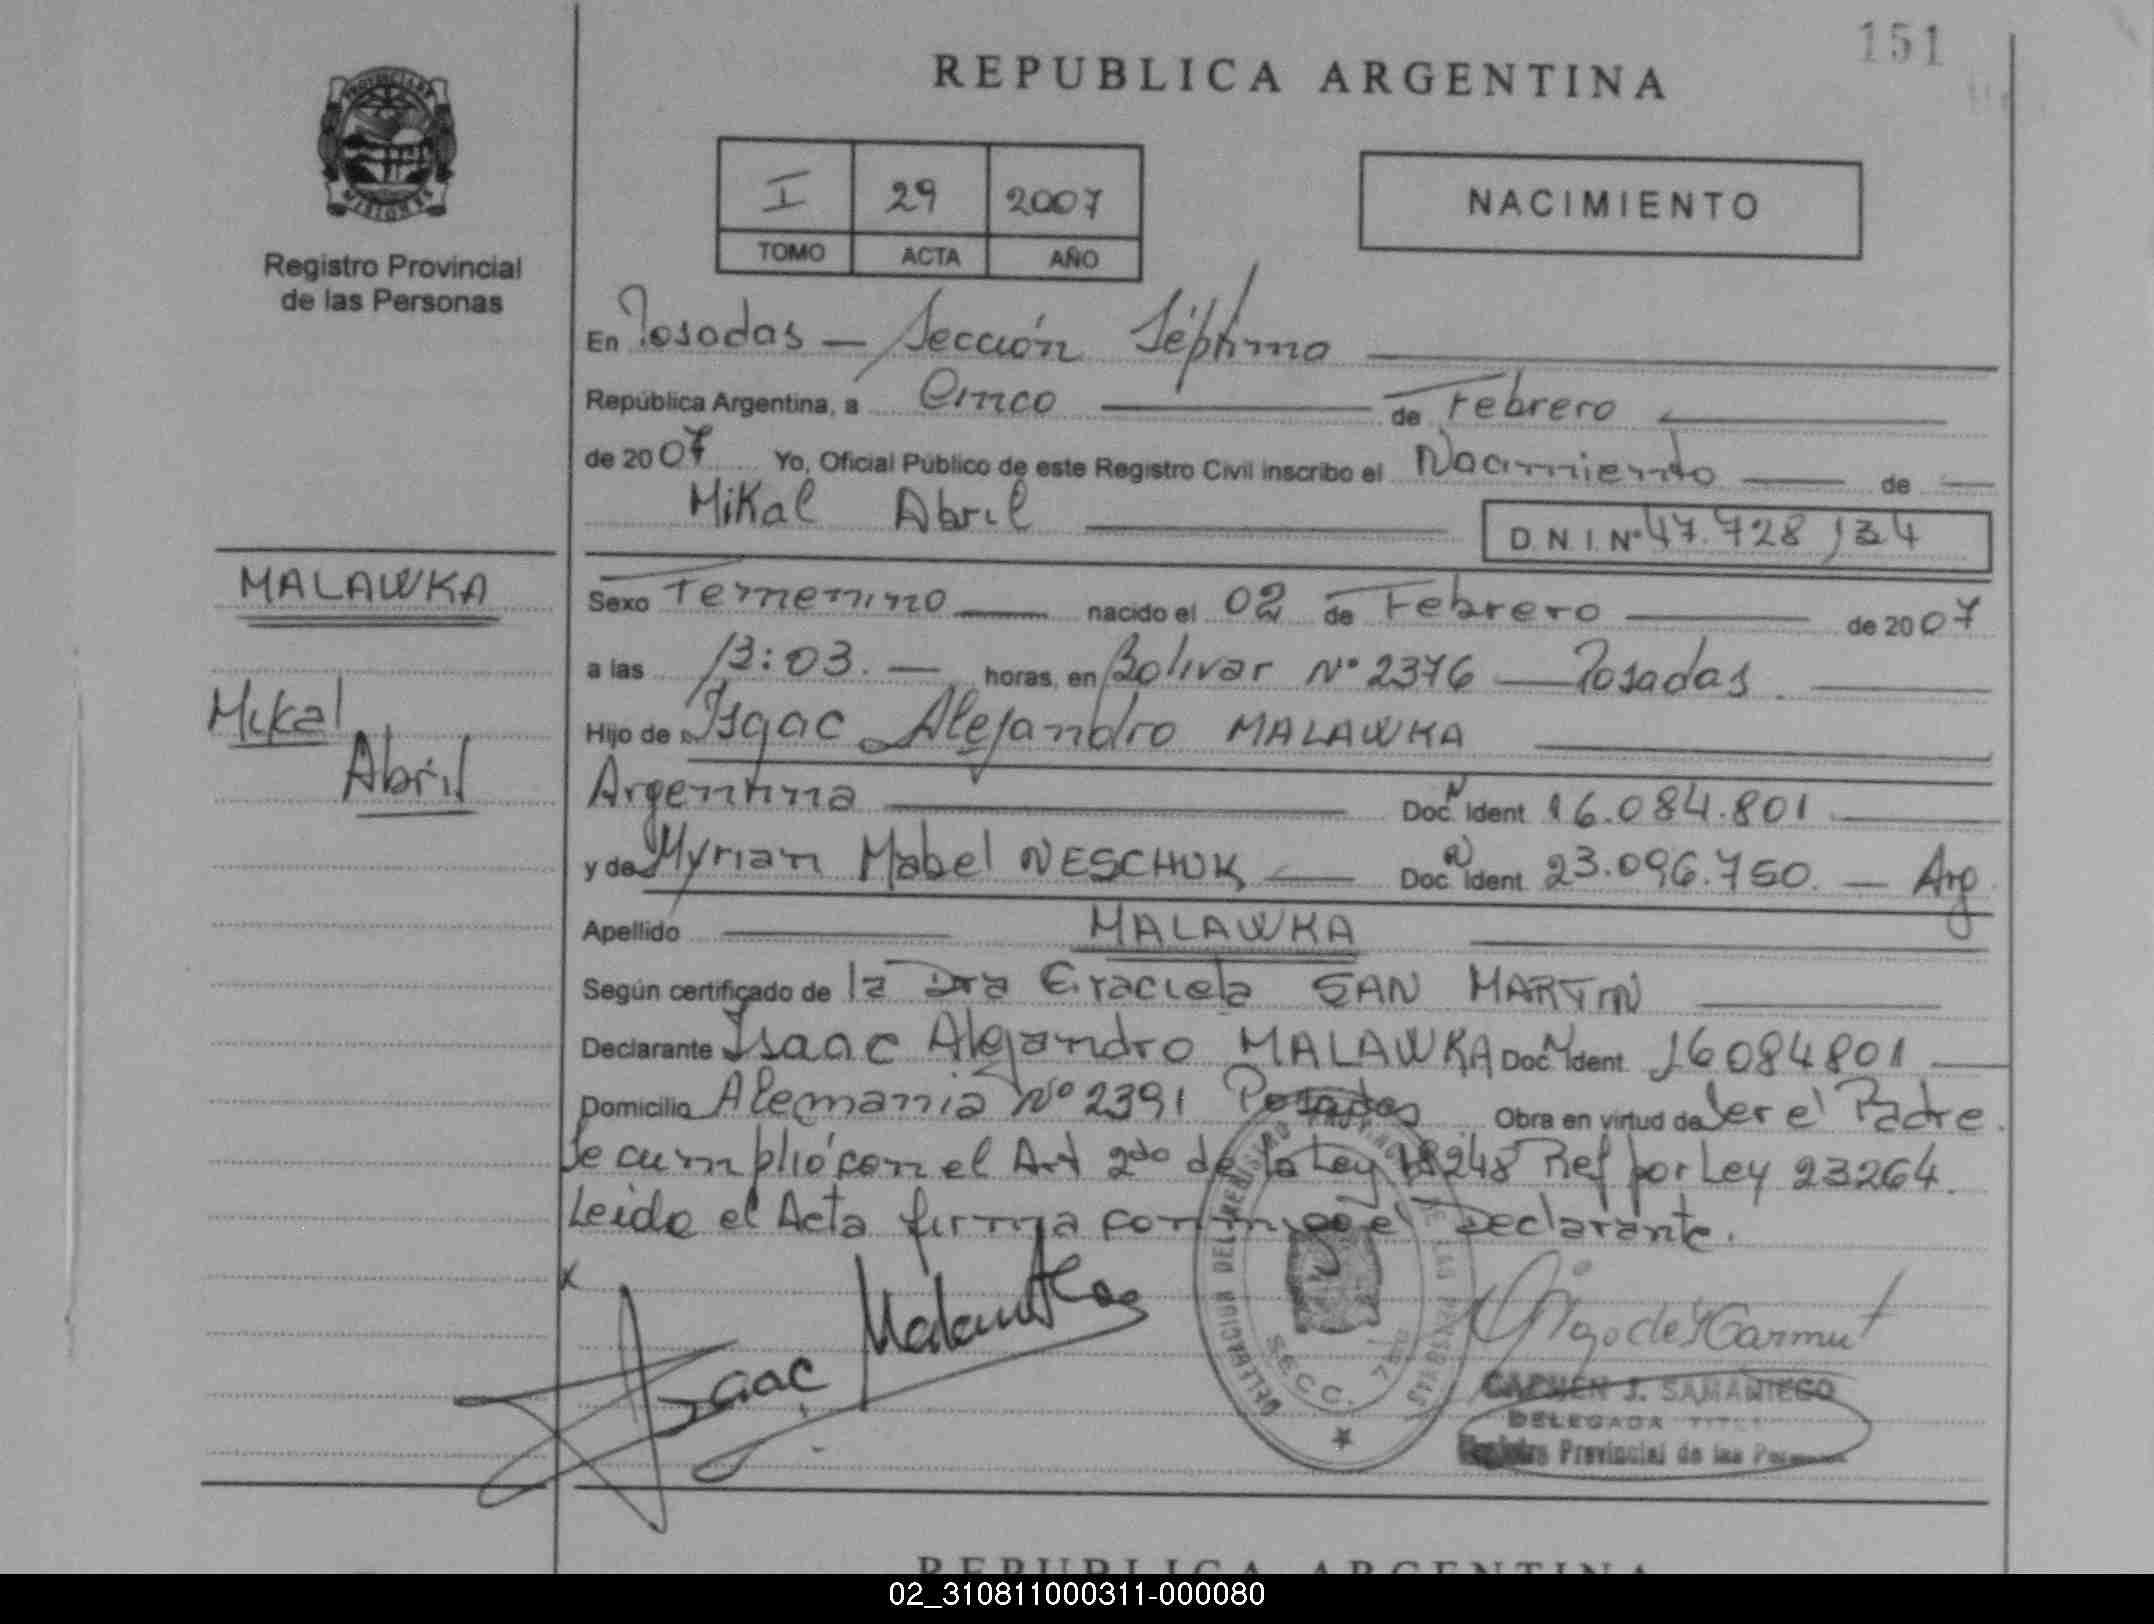 151
REPUBLICA ARGENTINA
PROVINCIA DE
MISIONES
Registro Provincial
de las Personas
I 29 2007
TOMO ACTA AÑO
NACIMIENTO
En Posadas — Sección Séptima
República Argentina, a Cinco de Febrero
de 2007 Yo, Oficial Público de este Registro Civil inscribo el Nacimiento de
Mikal Abril
D.N.I. Nº 47.728.134
MALAWKA
Mikal
Abril
Sexo Femenino nacido el 02 de Febrero de 2007
a las 13:03. — horas, en Bolivar Nº 2376 — Posadas.
Hijo de Isaac Alejandro MALAWKA
Argentina Doc. N Ident 16.084.801
y de Myrian Mabel NESCHUK Doc. N Ident 23.096.750. — Arg
Apellido MALAWKA
Según certificado de la Dra Graciela SAN MARTIN
Declarante Isaac Alejandro MALAWKA Doc. N Ident. 16084801
Domicilio Alemania Nº 2391 Posadas Obra en virtud de Ser el Padre.
Se cumplió con el Art 2do de la Ley 18248 Ref por Ley 23264.
Leido el Acta firma conmigo el Declarante.
x
Isaac Malawka
SECC. 7
CARMEN J. SAMANIEGO
DELEGADA
Registro Provincial de las
REPUBLICA ARGENTINA
02_310811000311-000080